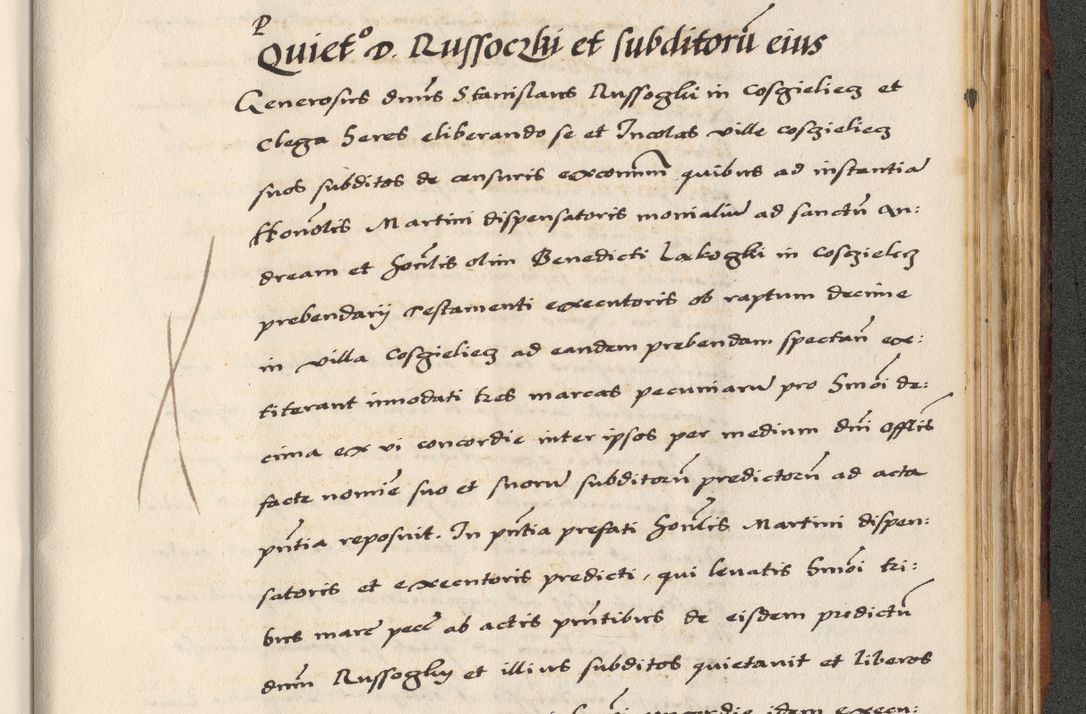 P
Quiet° D. Russoczki et subditorū eius
Generosus dnūs Stanislaus Russoczki in Coszieliecz et
Clega heres eliberando se et Incolas ville coszieliecz
suos subditos de censuris excommn quibus ad instantia
Honōlis Martini dispensatoris monialiū ad sanctū An:
dream et honōlis olim Benedicti in Coszielecz
prebendarij testamenti executoris ob raptum decime
in villa Coszieliecz ad eandem prebendam spectan̄
titerant innodati tres marcas pecuniarū pro hmōi de:
cima ex vi concordie inter ipsos per medium dnī Offlis
facte nomīe suo et suorū subditorū predictorū ad acta
pn̄tia reposuit. In pn̄tia prefati honōlis Martini dispen:
satoris et executoris predicti, qui levatis hmōi tri:
bus marc̄ pecc̄ ab actis pn̄tibus de eisdem predictū
dnūm Russoczky et illius subditos quietavit et liberos
concordie idem execu: